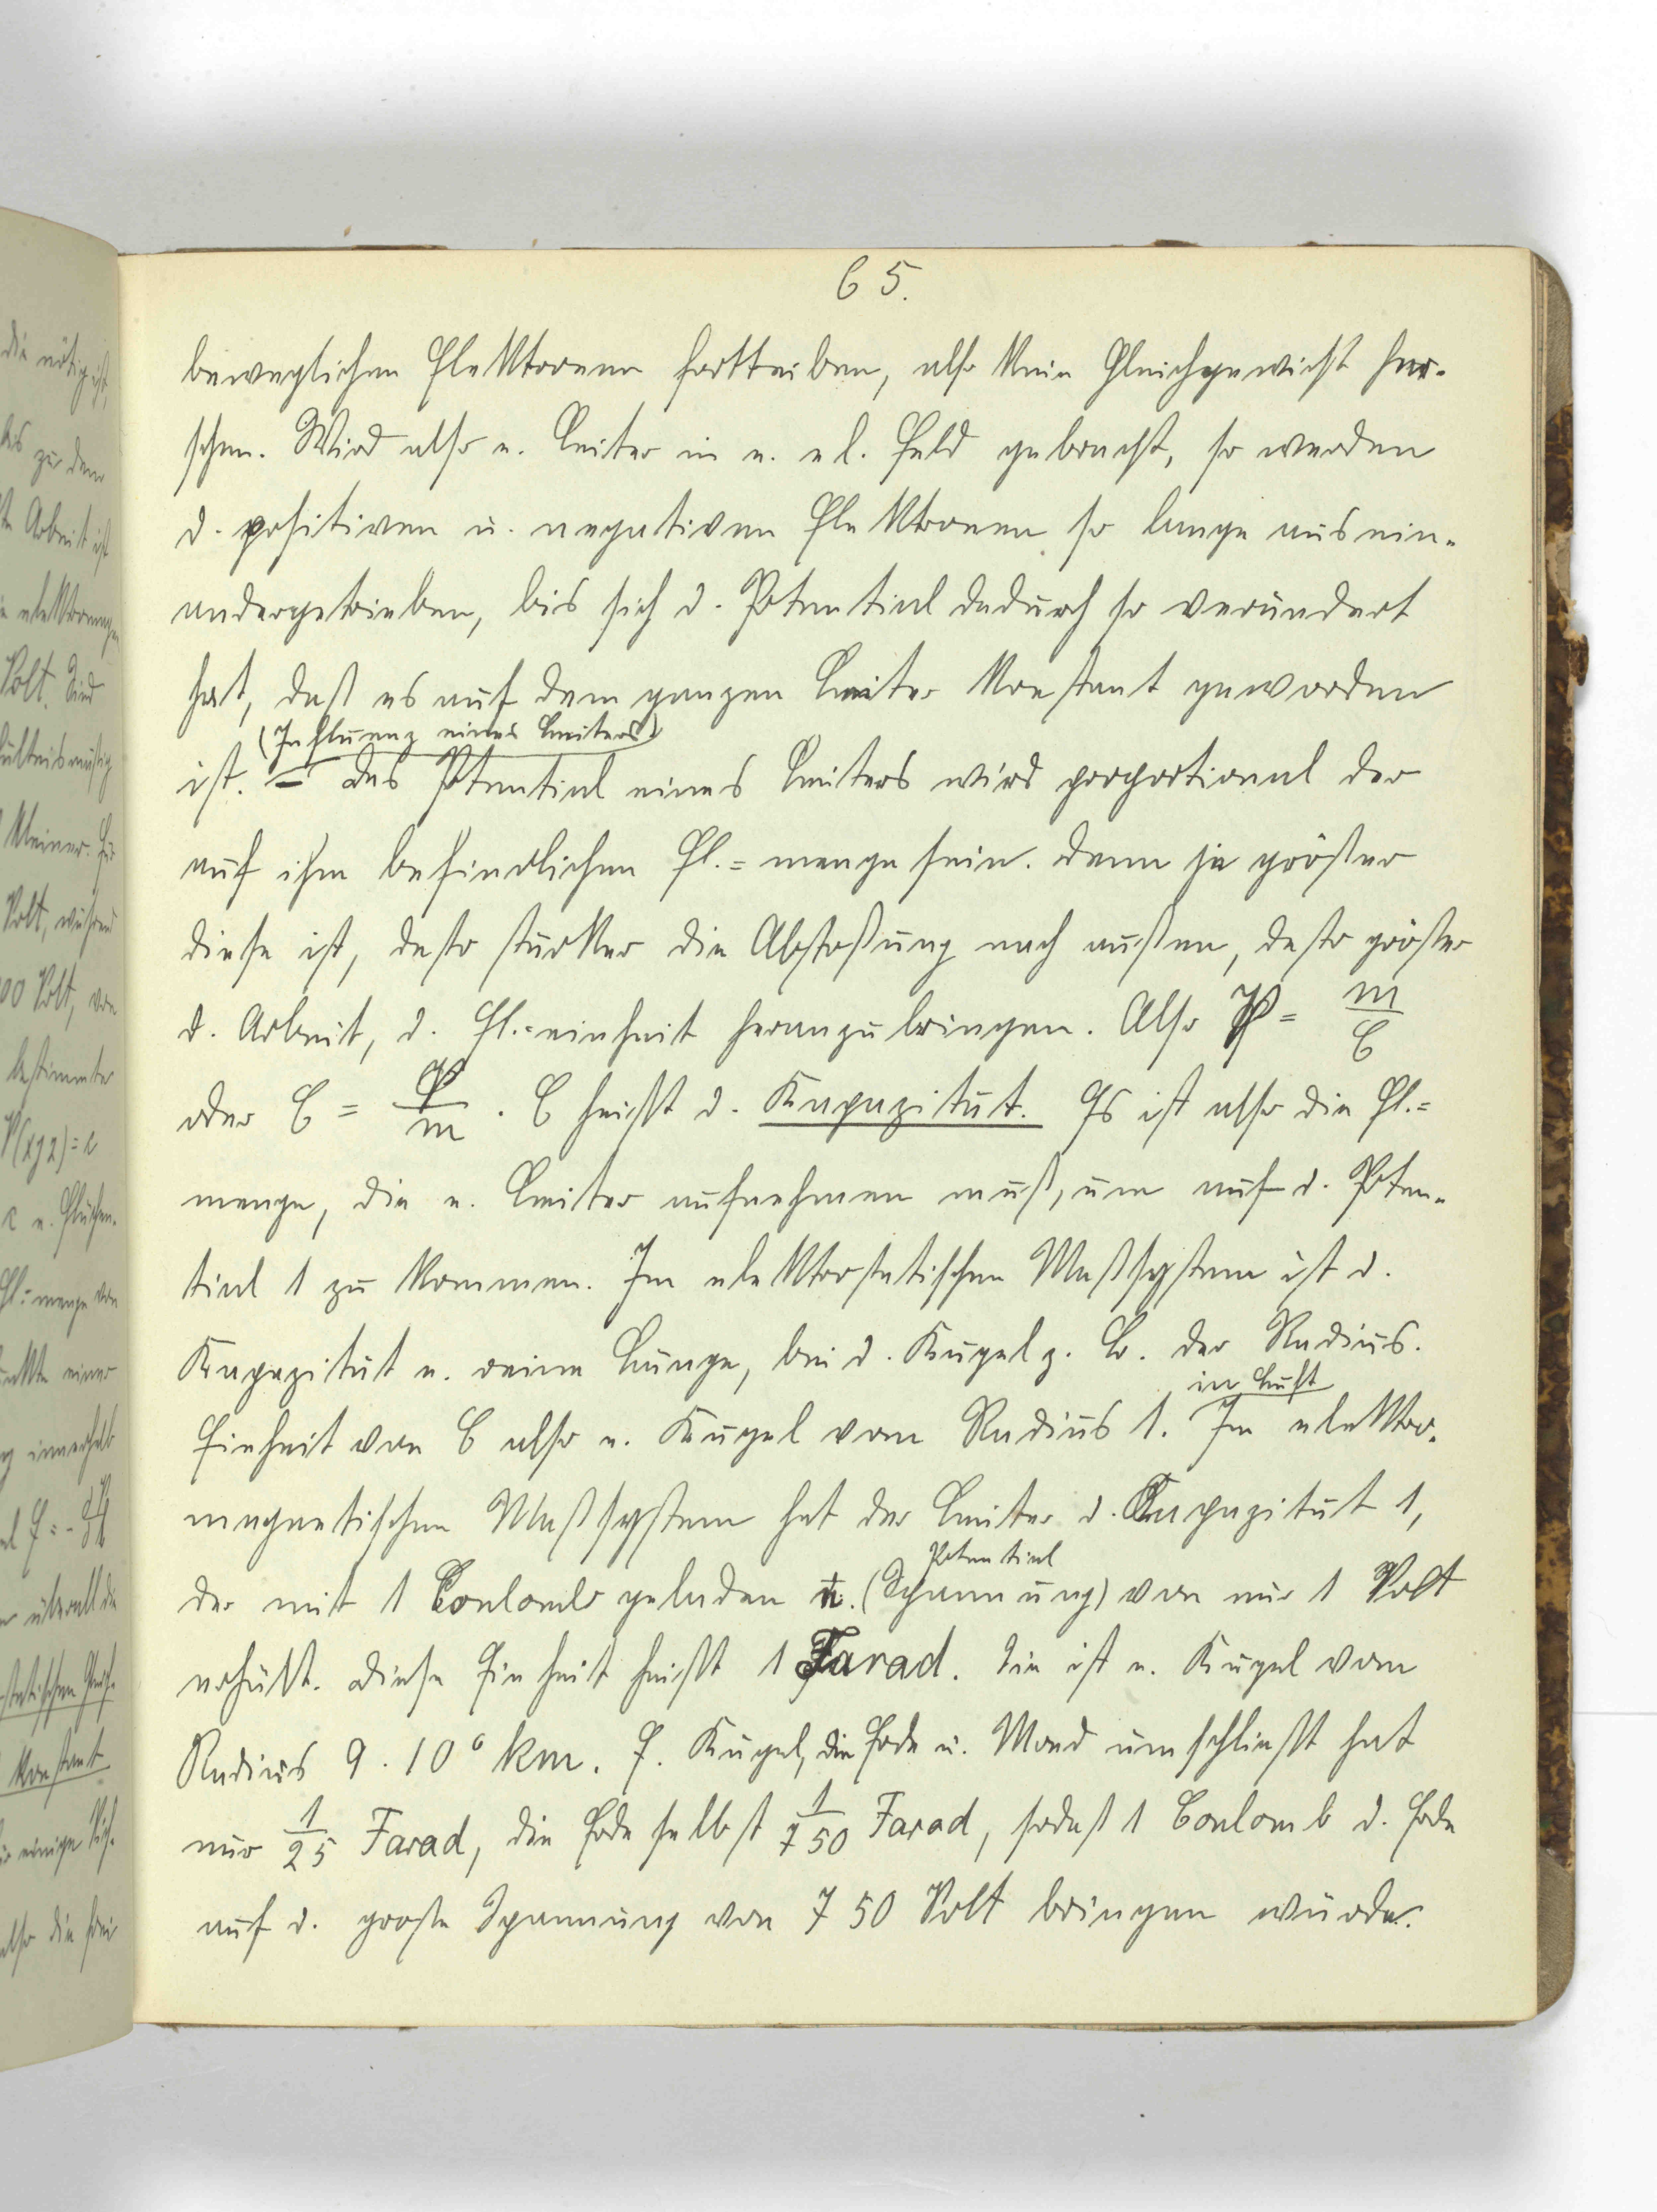 65.
beweglichen Elektronen forttreiben, also kein Gleichgewicht herr-
schen. Wird also e. Leiter in e. el. Feld gebracht, so werden
d. positiven u. negativen Elektronen so lange ausein-
andergetrieben, bis sich d. Potential dadurch so verändert
hat, daß es auf dem ganzen Leiter konstant geworden
(Influenz eines Leiters)
ist. – Das Potential eines Leiters wird proportional der
auf ihm befindlichen El.=menge sein. Denn je größer
diese ist, desto stärker die Abstoßung nach außen, desto größer
d. Arbeit, d. El.=einheit heranzubringen. Also P = m/C
oder C = P/m . C heißt d. Kapazität. Es ist also die El.=
menge, die e. Leiter aufnehmen muß, um auf d. Poten-
tial 1 zu kommen. Im elektrostatischen Maßsystem ist d.
Kapazität e. reine Länge, bei d. Kugel z. B. der Radius.
in Luft
Einheit von C also e. Kugel vom Radius 1. Im elektro-
magnetischen Maßsystem hat der Leiter d. Kapazität 1,
Potential
der mit 1 Coulomb geladen e. (Spannung) von nur 1 Volt
erhält. Diese Einheit heißt 1 Farad. Sie ist e. Kugel vom
Radius 9 . 10⁶ km. E. Kugel, die Erde u. Mond umschließt hat
nur 1/25 Farad, die Erde selbst 1/750 Farad, sodaß 1 Coulomb d. Erde
auf d. große Spannung von 750 Volt bringen würde.